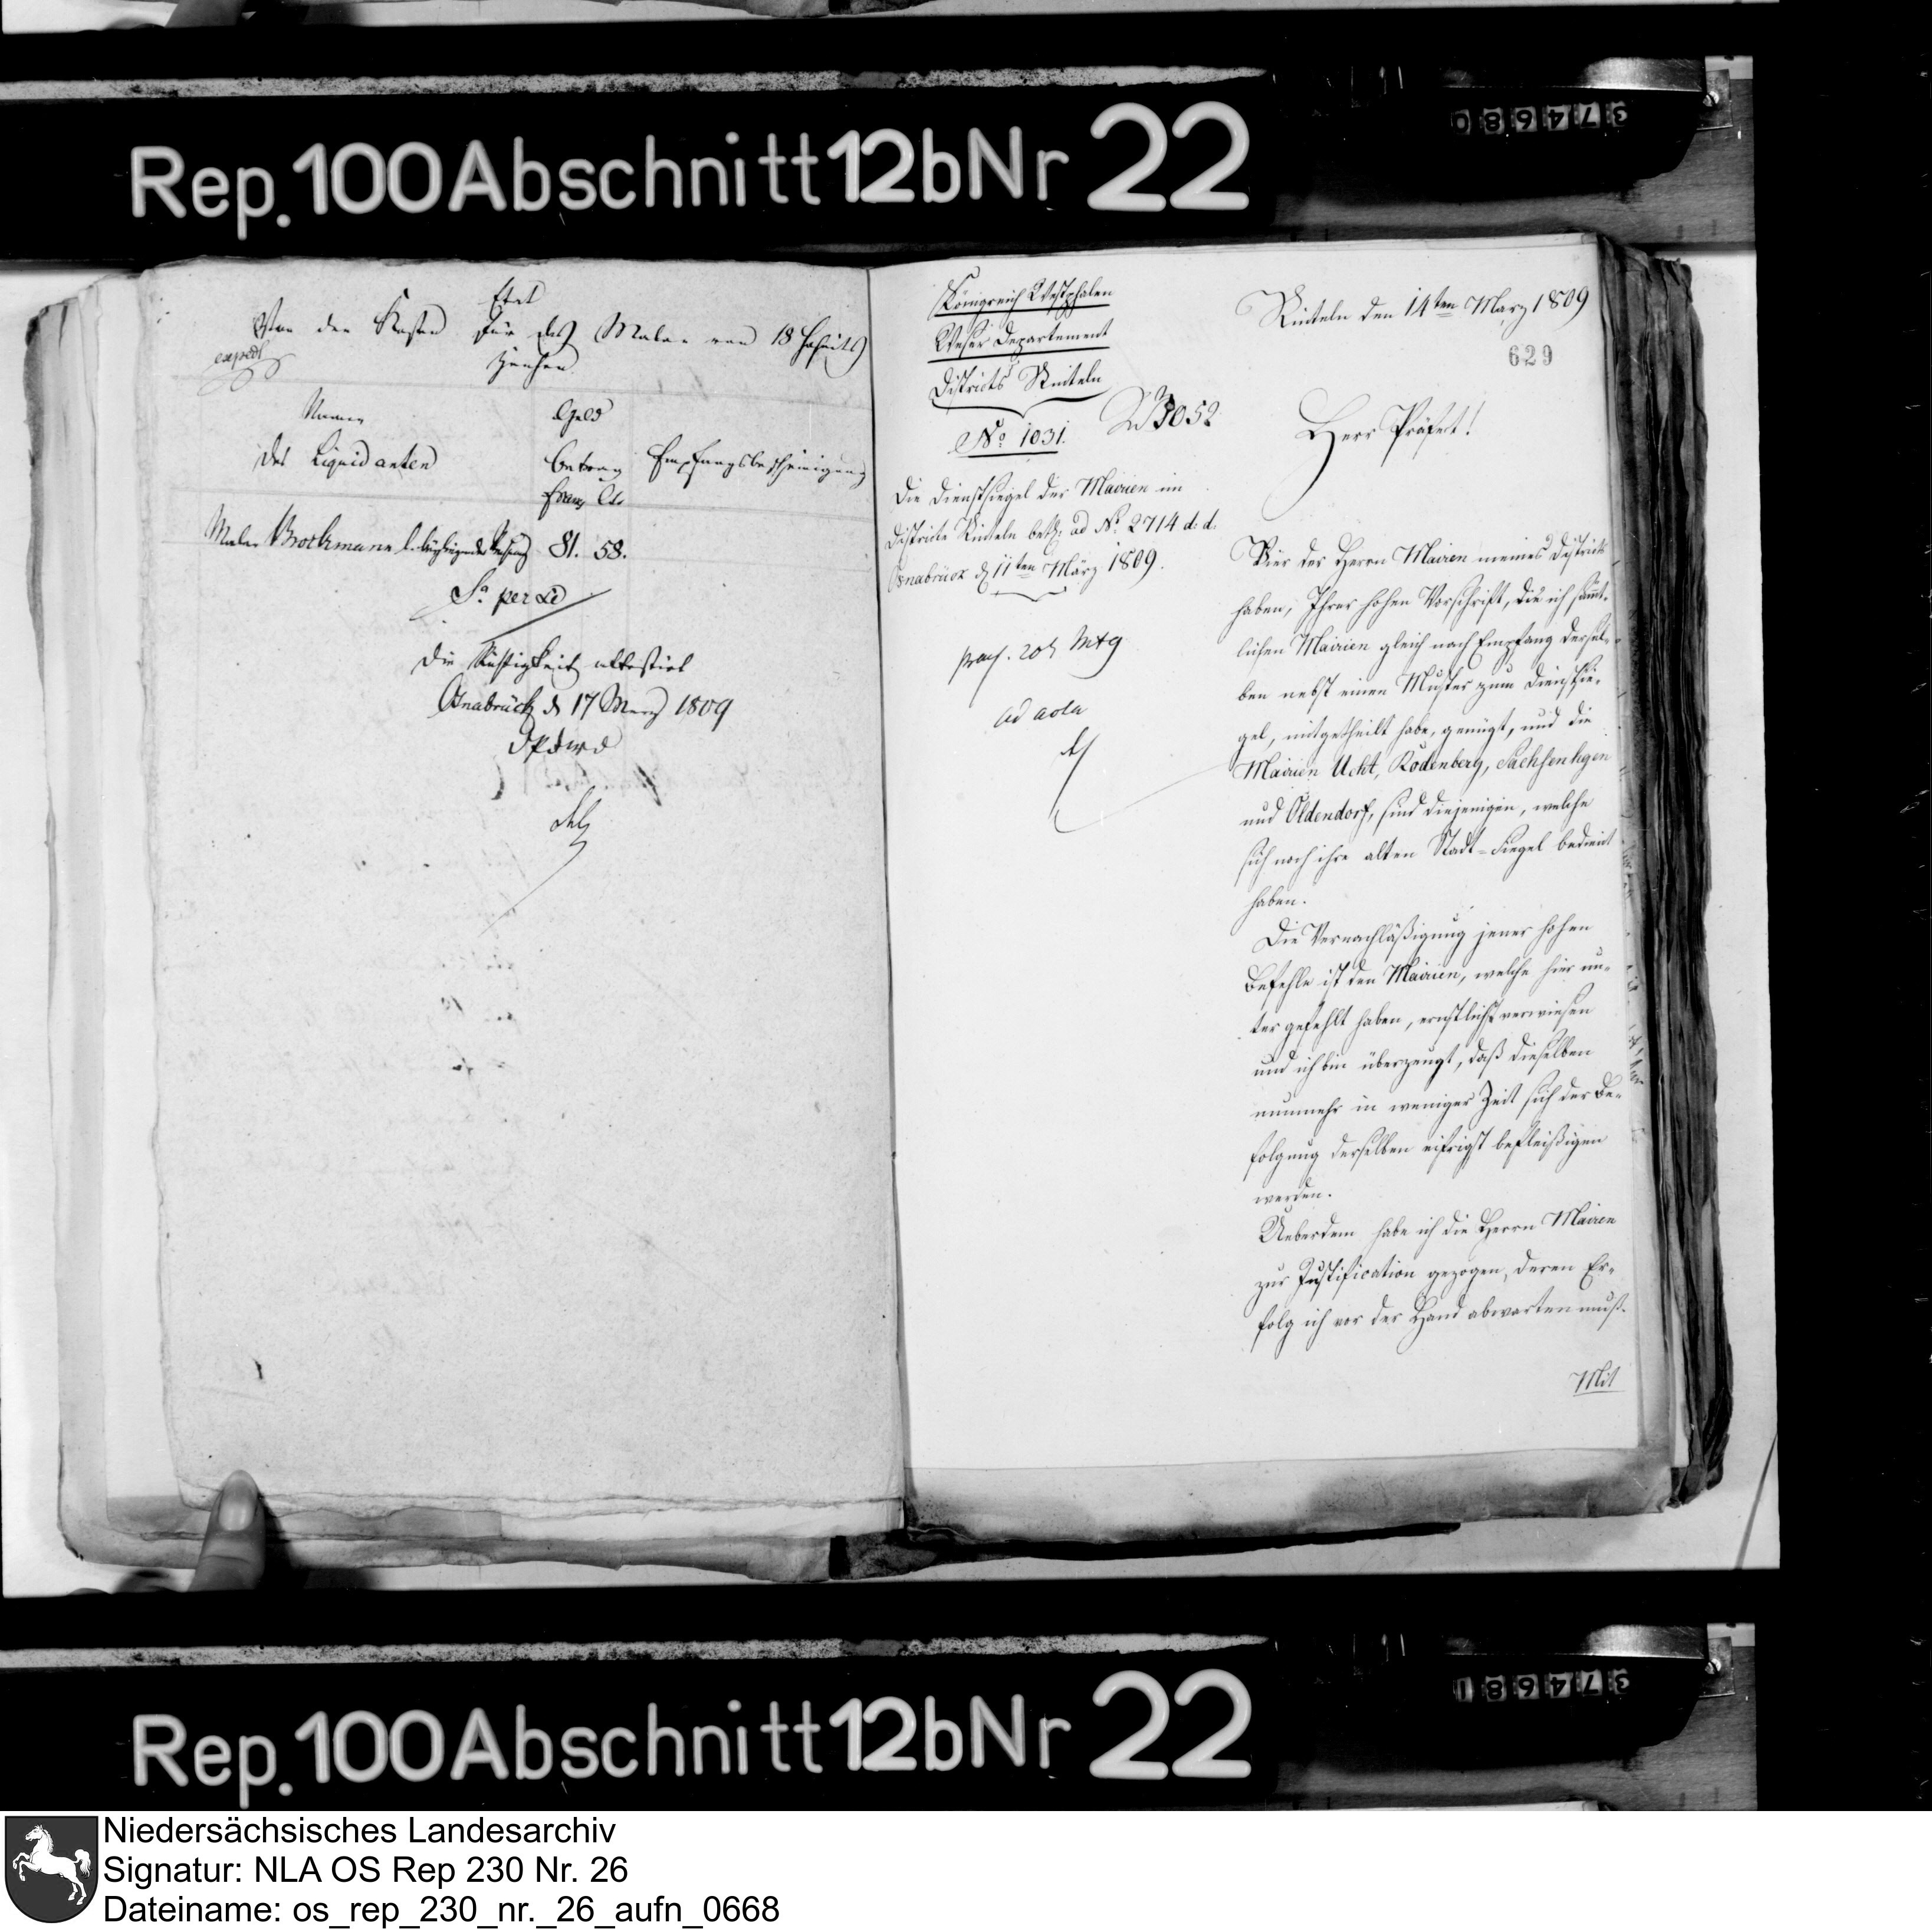 374680
Rep. 100 Abschnitt 12b Nr 22
Etat
Von den Kosten für das Malen von 18 Hoheits
expedt
zeichen
Namen
des Liquidanten
Geld
betrag
Franz Cts
Empfangsbescheinigung
Maler Brockmann l. beyliegender Rechnung 81. 58.
Sa. per se
Die Richtigkeit attestirt
Osnabrück d 17 Merz 1809
Königreich Westphalen
Weser Departement
Districts Rinteln
No. 1031.
3052
Die Dienstsiegel der Mairien im
Districte Rinteln betr. ad No. 2714 d. d.
Osnabrück d 11ten März 1809.
ad acta
Rinteln den 14ten März 1809
629
Herr Präfect!
Vier der Herrn Mairien meines Districts
haben, Ihrer hohen Vorschrift, die ich sämt-
lichen Mairien gleich nach Empfang dersel-
ben nebst einen Muster zum Dienstsie-
gel, mitgetheilt habe, genügt, und die
Mairien Ucht, Rodenberg, Sachsenhgen
und Oldendorf, sind diejenigen, welche
sich noch ihre alten Stadt-Siegel bedient
haben.
Die Vernachläßigung jener hohen
Befehle ist den Mairien, welche hier un-
ter gefehlt haben, ernstlichst verwiesen
und ich bin überzeugt, daß dieselben
nunmehr in weniger Zeit sich der Be-
folgung derselben eifrigst befleißigen
werden.
Ueberdem habe ich die Herrn Mairen
zur Justification gezogen, deren Er-
folg ich vor der Hand abwarten muß.
Mit
374681
Rep. 100 Abschnitt 12b Nr 22
Niedersächsisches Landesarchiv
Signatur: NLA OS Rep 230 Nr. 26
Dateiname: os_rep_230_nr._26_aufn_0668